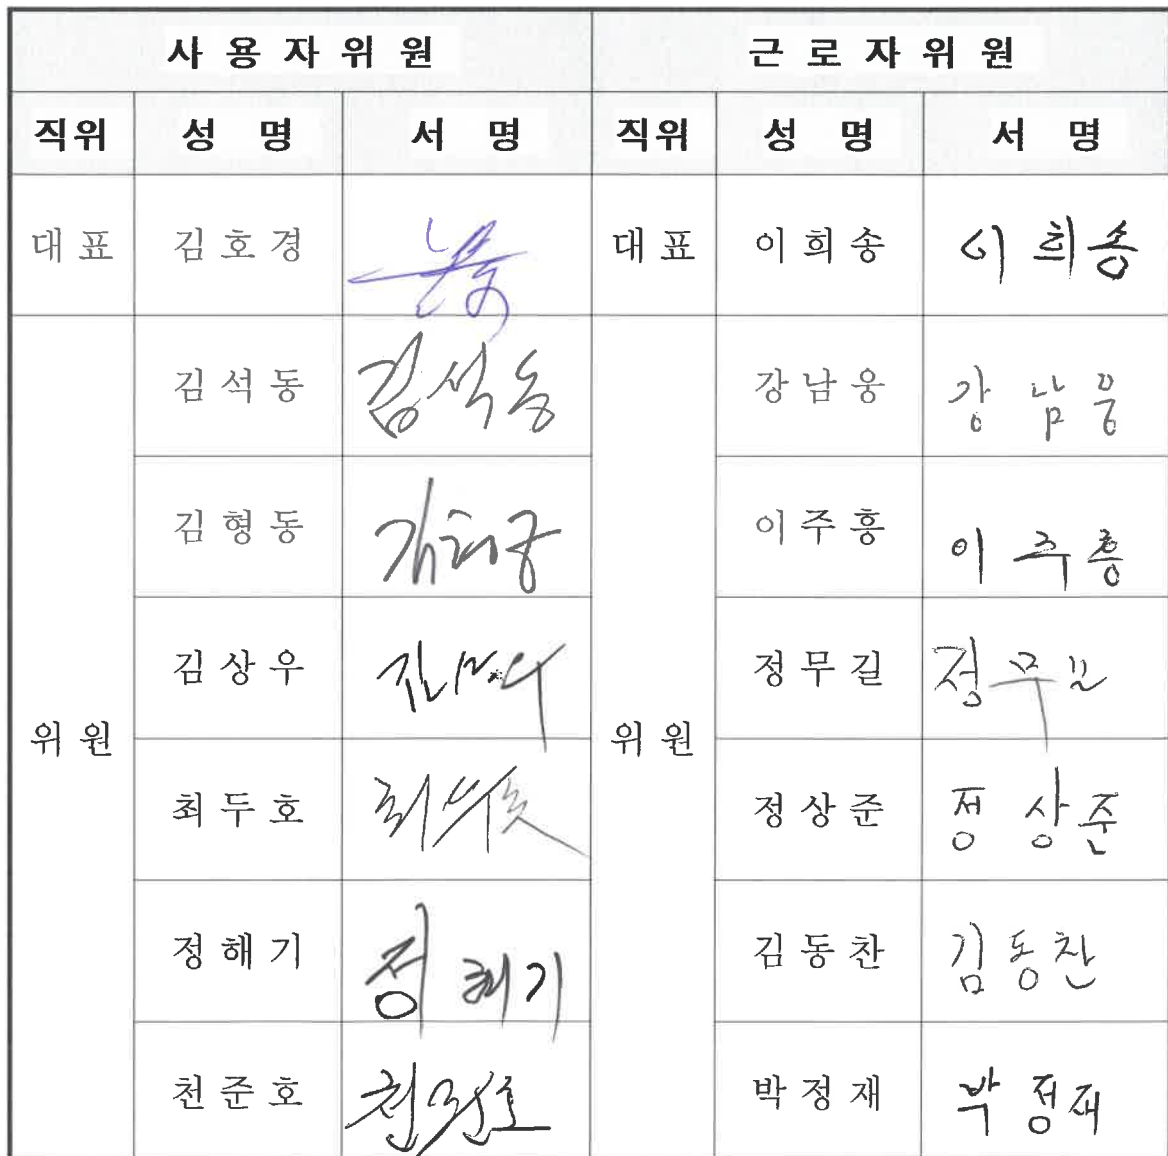 사 용 자 위 원 근 로 자 위 원
직위 성 명 서 명 직위 성 명 서 명
대 표 김 호 경 대 표 이 희 송 이 희 송
김 석 동 김 석 동 강 남 웅 강 남 웅
김 형 동 이 주 흥 이 주 흥
김 상 우 정 무 길 정 무 길
위 원 위 원
최 두 호 최 두 호 정 상 준 정 상 준
정 해 기 정 해 기 김 동 찬 김 동 찬
천 준 호 천 준 호 박 정 재 박 정 재